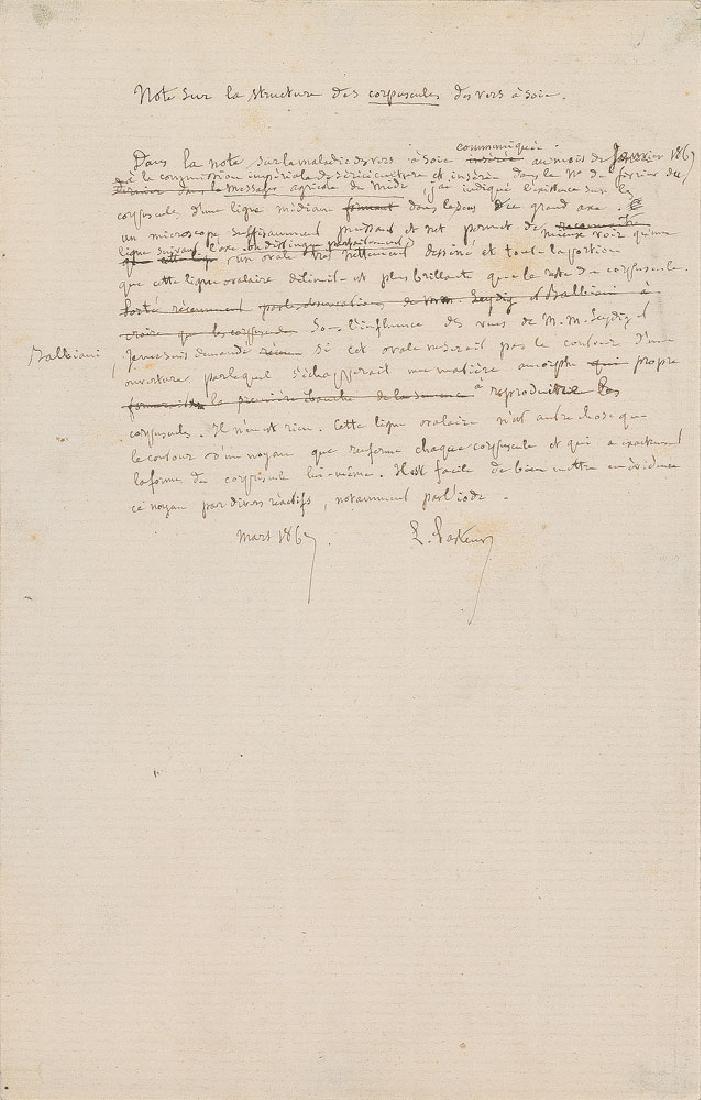 Note sur la structure des corpuscules des vers à soie.
communiquée
Dans la note sur la maladie des vers à soie insérée au mois de Janvier 1867
à la commission impériale de sériciculture et insérée dans le No de février du
dernier dans le messager agricole du midi, j'ai indiqué l'existence sur le
corpuscule d'une ligne médiane dans le sens du grand axe.
un microscope suffisamment puissant et net permet de reconnaître
mieux voir qu'une
ligne suivant l'axe on distingue parfaitement
que cette ligne un ovale très nettement dessiné et tout la portion
que cette ligne ovalaire délimite est plus brillante que le reste du corpuscule.
Porté récemment par les observations de MM. Leydig et Balbiani à
croire que les corpuscules Sous l'influence des vues de M.M. Leydig et
Balbiani, je me suis demandé si cet ovale ne serait pas le contour d'une
ouverture par laquelle s'échapperait une matière amorphe qui propre
la première ébauche de la à reproduire les
corpuscules. Il n'en est rien. Cette ligne ovalaire n'est autre chose que
le contour d'un noyau que renferme chaque corpuscule et qui a exactement
la forme du corpuscule lui-même. Il est facile de bien mettre en évidence
ce noyau par divers réactifs, notamment par l'iode.
Mars 1867. L. Pasteur